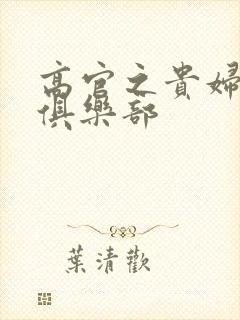 高官之貴婦
俱樂部
葉清歡